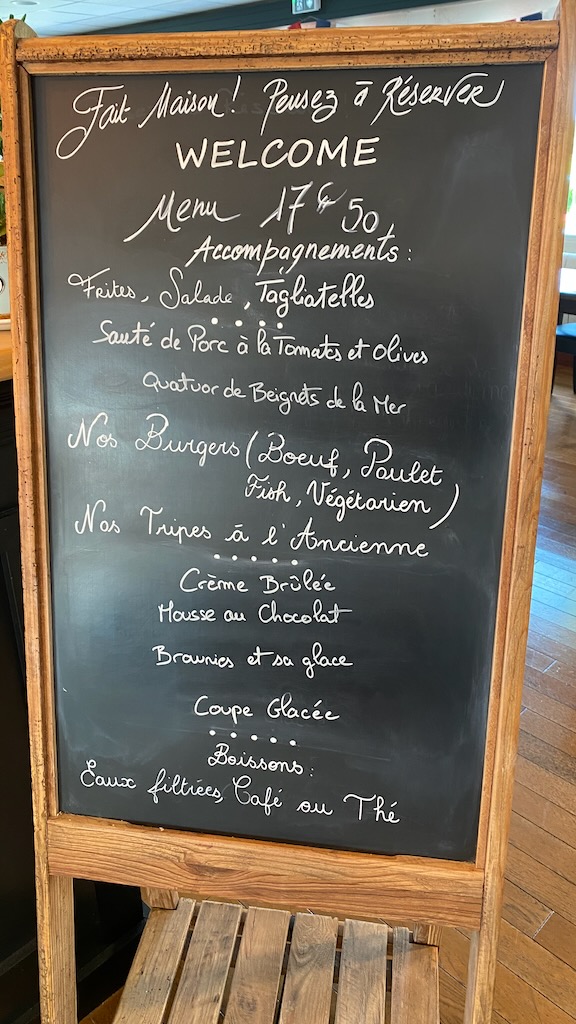 Fait Maison! Pensez à Réserver
WELCOME
Menu 17€50
Accompagnements:
Frites, Salade, Tagliatelles
Sauté de Porc à la Tomates et Olives
Quatuor de Beignets de la Mer
Nos Burgers (Boeuf, Poulet
Fish, Végétarien)
Nos Tripes à l'Ancienne
Crème Brûlée
Mousse au Chocolat
Brownies et sa glace
Coupe Glacée
Boissons:
Eaux filtrées, Café ou Thé